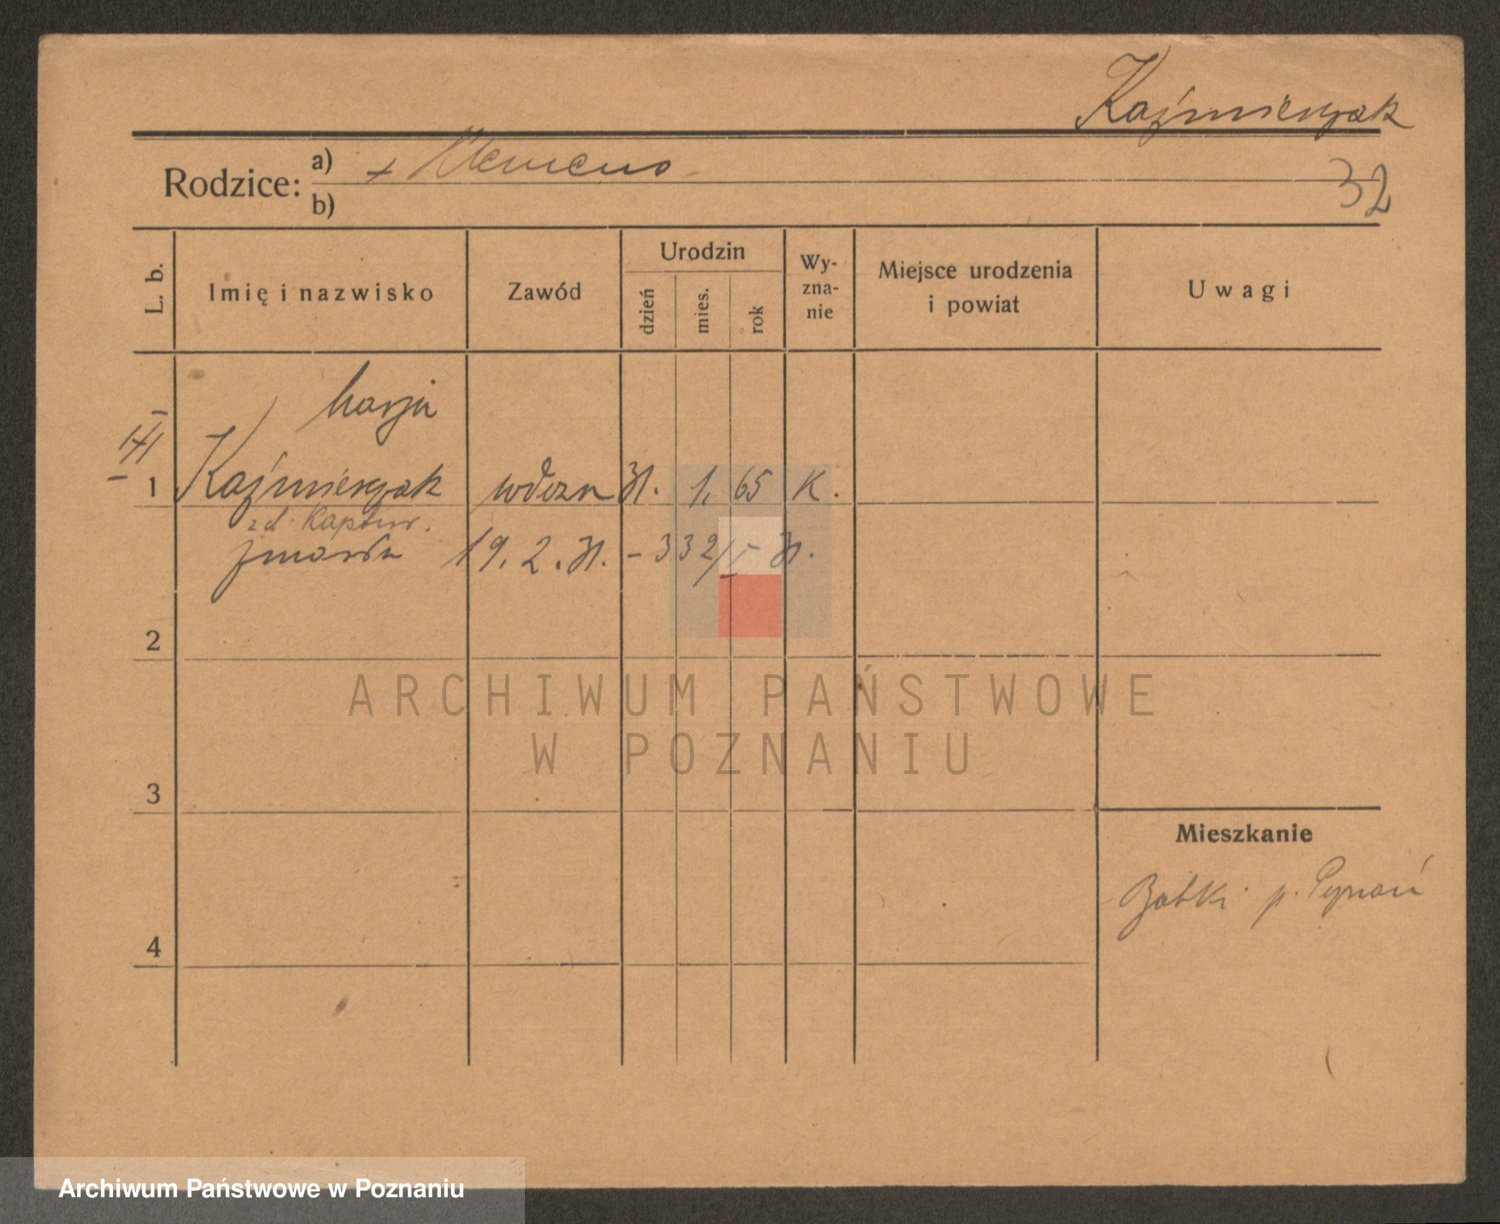 Kaźmierczak
32
Rodzice: a) + Klemens
b)
L. b.
Imię i nazwisko
Zawód
Urodzin
dzień
mies.
rok
Wy-
zna-
nie
Miejsce urodzenia
i powiat
Uwagi
Marja
1 Kaźmierczak wdowa 31. 1. 65 K.
zd. Kaptur.
zmarła 19. 2. 31. - 332/I - 31.
2
3
4
Mieszkanie
Babki p. Poznań
ARCHIWUM PAŃSTWOWE
W POZNANIU
Archiwum Państwowe w Poznaniu